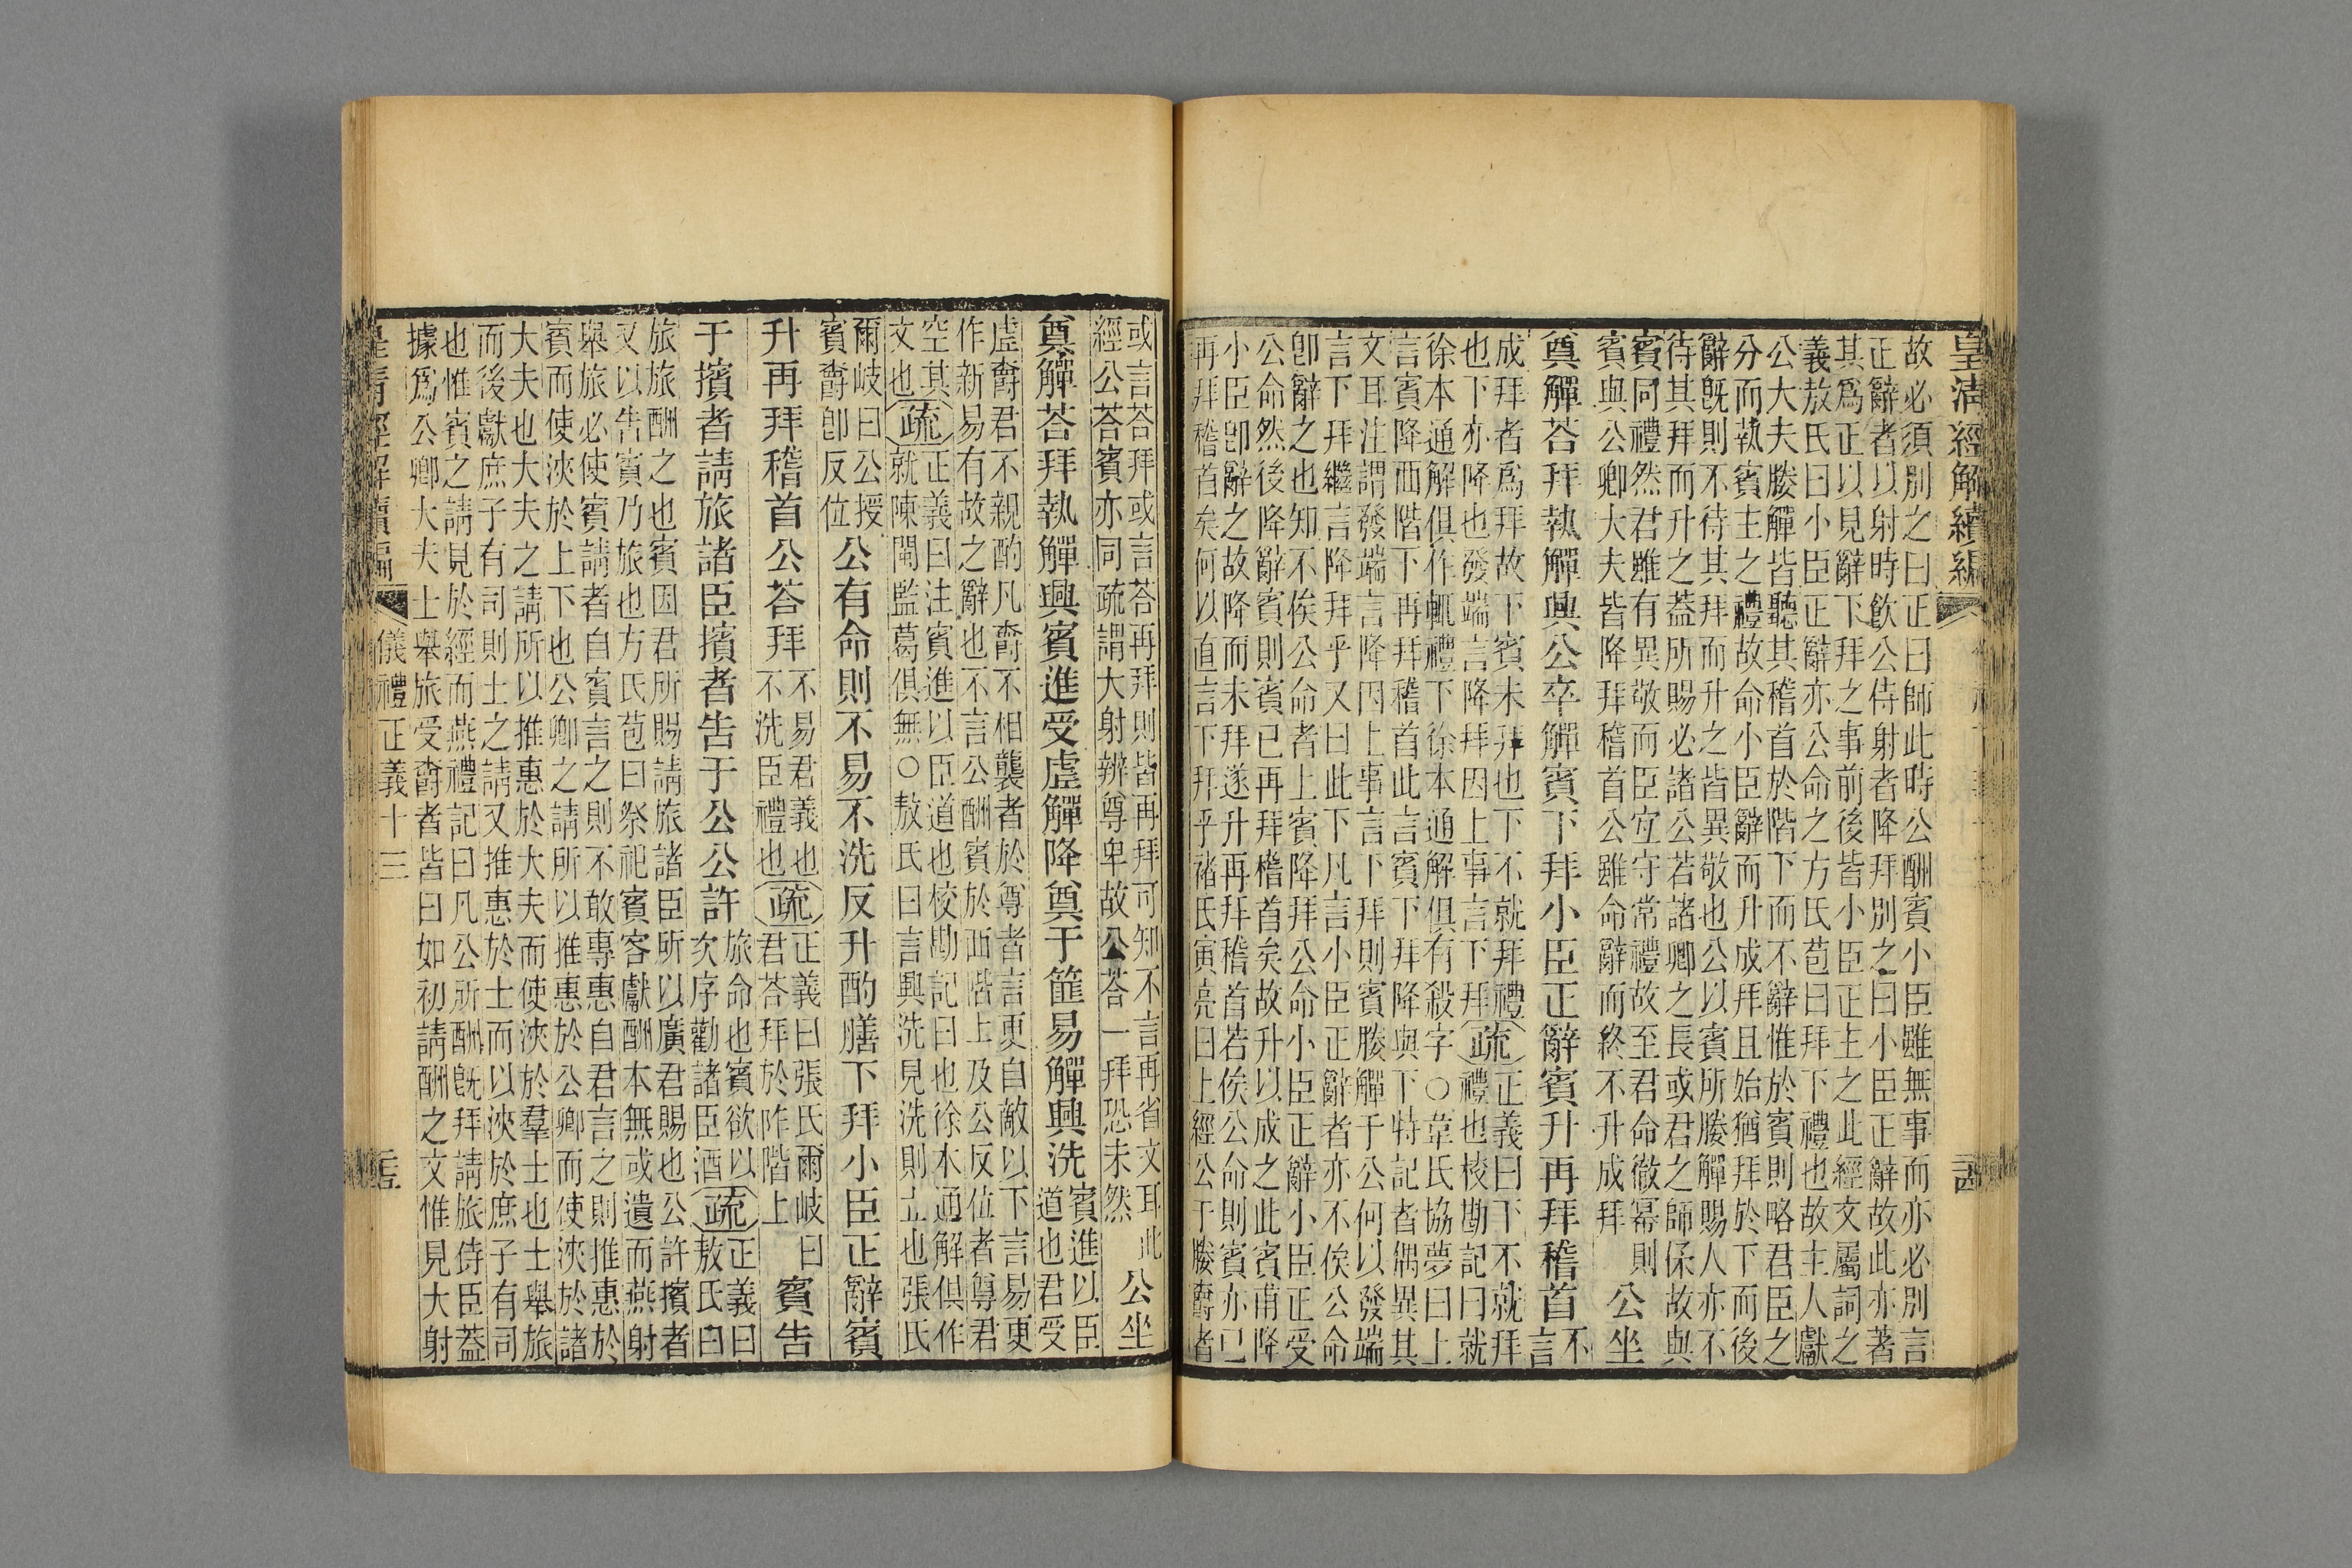 皇清經解續編
故必須別之曰正曰師此時公酬賓小臣雖無事而亦必別言
正辭者以射時飮公侍射者降拜別之曰小臣正辭故此亦著
其爲正以見辭下拜之事前後皆小臣正主之此經文屬詞之
義敖氏曰小臣正辭亦公命之方氏苞曰拜下禮也故主人獻
公大夫媵觶皆聽其稽首於階下而不辭惟於賓則略君臣之
分而執賓主之禮故命小臣辭而升成拜且始猶拜於下而後
辭旣則不待其拜而升之皆異敬也公以賓所媵觶賜人亦不
待其拜而升之葢所賜必諸公若諸卿之長或君之師保故與
賓同禮然君雖有異敬而臣宜守常禮故至君命徹冪則
賓與公卿大夫皆降拜稽首公雖命辭而終不升成拜
公坐
奠觶荅拜執觶興公卒觶賓下拜小臣正辭賓升再拜稽首
不言
成拜者爲拜故下賓未拜也下不就拜禮
也下亦降也發端言降拜因上事言下拜
疏
正義曰下不就拜
禮也校勘記曰就
徐本通解俱作輒禮下徐本通解俱有殺字○韋氏協夢曰上
言賓降西階下再拜稽首此言賓下拜降與下特記者偶異其
文耳注謂發端言降因上事言下拜則賓媵觶于公何以發端
言下拜繼言降拜乎又曰此下凡言小臣正辭者亦不俟公命
卽辭之也知不俟公命者上賓降拜公命小臣正辭小臣正受
公命然後降辭賓則賓已再拜稽首矣故升以成之此賓甫降
小臣卽辭之故降而未拜遂升再拜稽首若俟公命則賓亦已
再拜稽首矣何以直言下拜乎褚氏寅亮曰上經公于媵爵者
或言荅拜或言荅再拜則皆再拜可知不言再省文耳此
經公荅賓亦同疏謂大射辨尊卑故公荅一拜恐未然
公坐
奠觶荅拜執觶興賓進受虛觶降奠于篚易觶興洗
賓進以臣
道也君受
虛爵君不親酌凡爵不相襲者於尊者言更自敵以下言易更
作新易有故之辭也不言公酬賓於西階上及公反位者尊君
空其
文也
疏
正義曰注賓進以臣道也校勘記曰也徐本通解俱作
就陳閩監葛俱無○敖氏曰言興洗見洗則立也張氏
爾岐曰公授
賓爵卽反位
公有命則不易不洗反升酌膳下拜小臣正辭賓
升再拜稽首公荅拜
不易君義也
不洗臣禮也
疏
正義曰張氏爾岐曰
君荅拜於阼階上
賓告
于擯者請旅諸臣擯者告于公公許
旅命也賓欲以
次序勸諸臣酒
疏
正義曰
敖氏曰
旅旅酬之也賓因君所賜請旅諸臣所以廣君賜也公許擯者
又以告賓乃旅也方氏苞曰祭祀賓客獻酬本無或遺而燕射
舉旅必使賓請者自賓言之則不敢專惠自君言之則推惠於
賓而使浹於上下也公卿之請所以推惠於公卿而使浹於諸
大夫也大夫之請所以推惠於大夫而使浹於羣士也士舉旅
而後獻庶子有司則士之請又推惠於士而以浹於庶子有司
也惟賓之請見於經而燕禮記曰凡公所酬旣拜請旅侍臣葢
據爲公卿大夫士舉旅受爵者皆曰如初請酬之文惟見大射
皇清經解續編
儀禮正義十三